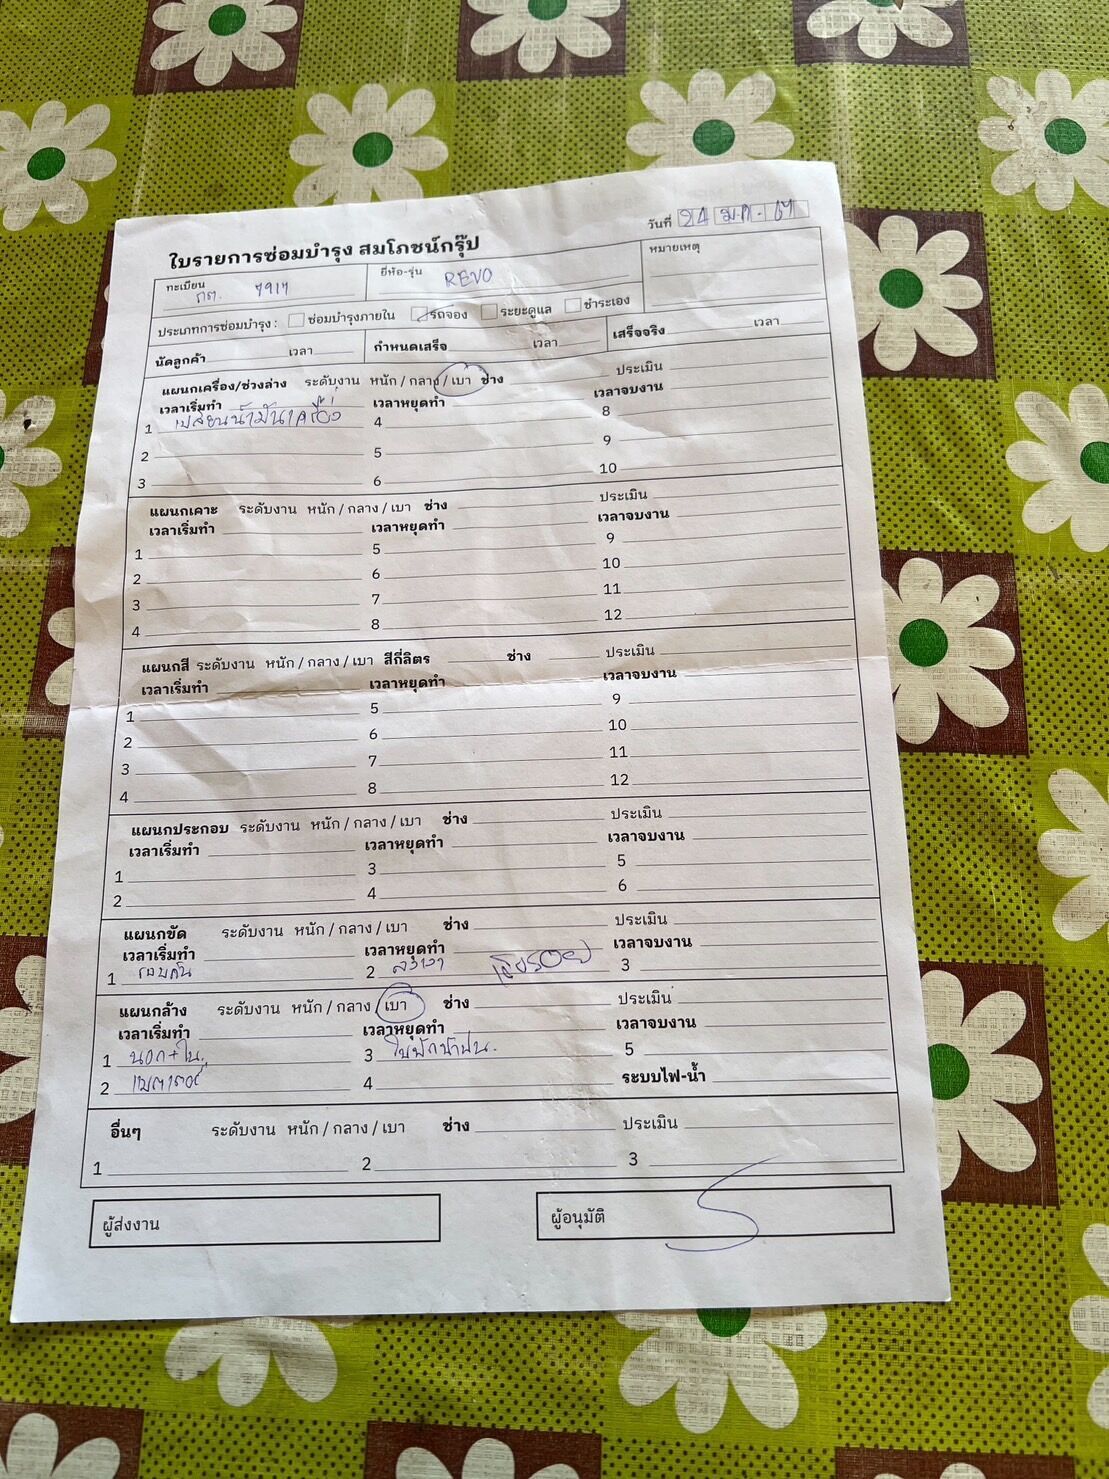 วันที่ 24 ม.ค. 67
ใบรายการซ่อมบำรุง สมโภชน์กรุ๊ป
ทะเบียน กต. 7917 ยี่ห้อ-รุ่น REVO หมายเหตุ
ประเภทการซ่อมบำรุง : ซ่อมบำรุงภายใน รถจอง ระยะดูแล ชำระเอง
นัดลูกค้า เวลา กำหนดเสร็จ เวลา เสร็จจริง เวลา
แผนกเครื่อง/ช่วงล่าง ระดับงาน หนัก / กลาง / เบา ช่าง ประเมิน
เวลาเริ่มทำ เวลาหยุดทำ เวลาจบงาน
1 เปลี่ยนน้ำมันเครื่อง 4 8
2 5 9
3 6 10
แผนกเคาะ ระดับงาน หนัก / กลาง / เบา ช่าง ประเมิน
เวลาเริ่มทำ เวลาหยุดทำ เวลาจบงาน
1 5 9
2 6 10
3 7 11
4 8 12
แผนกสี ระดับงาน หนัก / กลาง / เบา สีกี่ลิตร ช่าง ประเมิน
เวลาเริ่มทำ เวลาหยุดทำ เวลาจบงาน
1 5 9
2 6 10
3 7 11
4 8 12
แผนกประกอบ ระดับงาน หนัก / กลาง / เบา ช่าง ประเมิน
เวลาเริ่มทำ เวลาหยุดทำ เวลาจบงาน
1 3 5
2 4 6
แผนกขัด ระดับงาน หนัก / กลาง / เบา ช่าง ประเมิน
เวลาเริ่มทำ เวลาหยุดทำ เวลาจบงาน
1 รอบคัน 2 3
แผนกล้าง ระดับงาน หนัก / กลาง / เบา ช่าง ประเมิน
เวลาเริ่มทำ เวลาหยุดทำ เวลาจบงาน
1 นอก+ใน 3 ใบปัดน้ำฝน. 5
2 4 ระบบไฟ-น้ำ
อื่นๆ ระดับงาน หนัก / กลาง / เบา ช่าง ประเมิน
1 2 3
ผู้ส่งงาน ผู้อนุมัติ